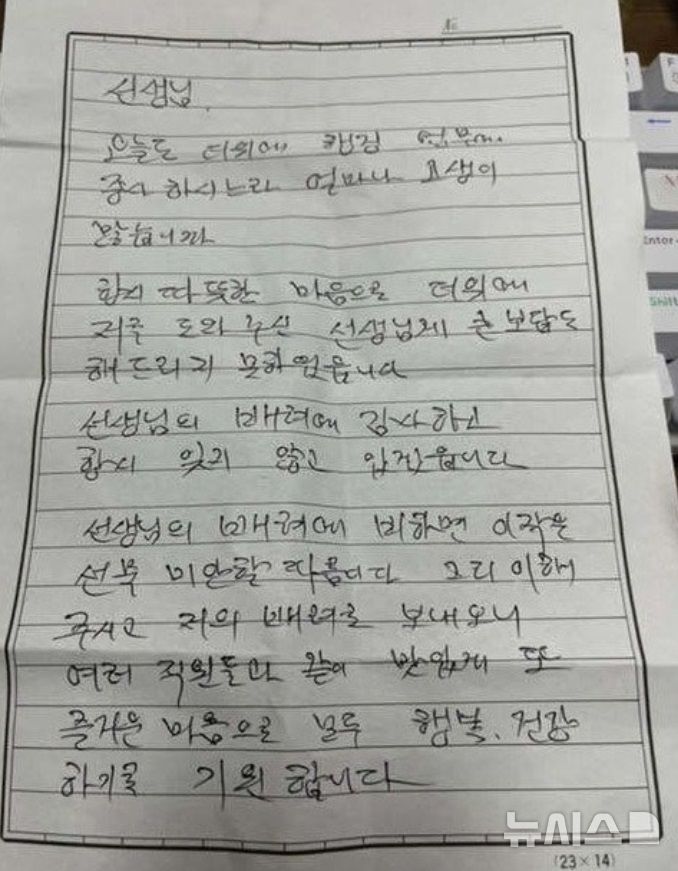 No
선생님.
오늘도 더위에 현장 업무에
종사 하시느라 얼마나 고생이
많습니까
항시 따뜻한 마음으로 더위에
저를 도와 주신 선생님께 큰 보답도
해 드리지 못하였읍니다
선생님의 배려에 감사하고
항시 잊지 않고 있겠읍니다
선생님의 배려에 비하면 이 작은
선물 미안할 따름이다 그리 이해
주시고 저의 배려를 보내오니
여러 직원들과 같이 맛있게 또
즐거운 마음으로 모두 행복, 건강
하기를 기원 합니다
뉴시스
(23×14)
Enter
Shift